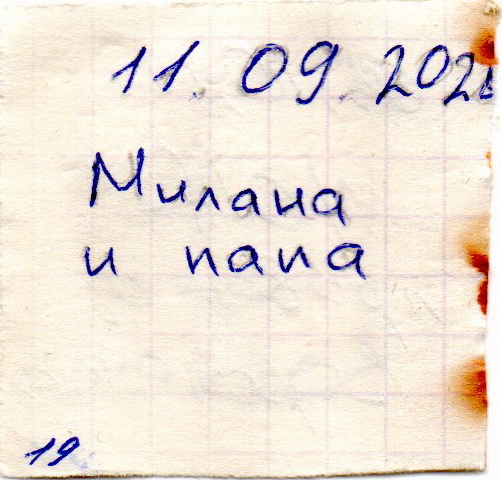 11.09.202
Милана
и папа
19